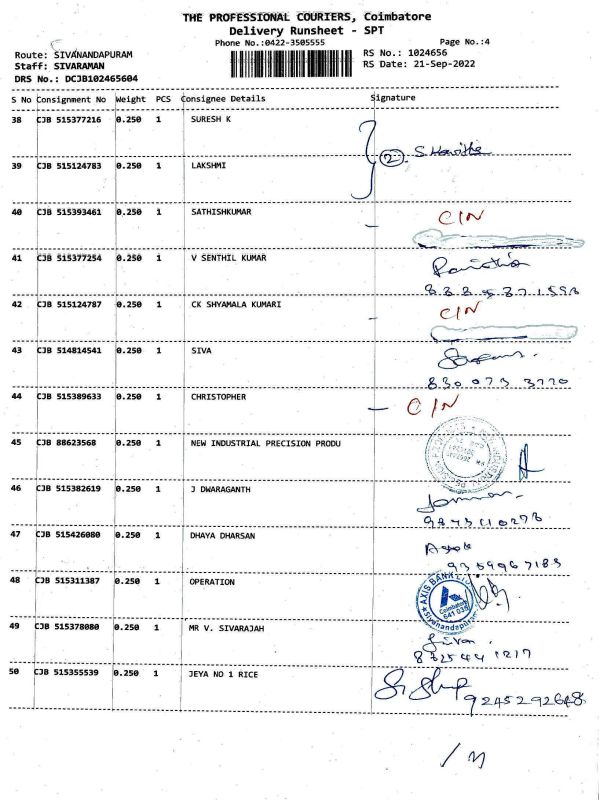 THE PROFESSIONAL COURIERS, Coimbatore
Delivery Runsheet - SPT
Phone No.:0422-3505555 Page No.:4
Route: SIVANANDAPURAM RS No.: 1024656
Staff: SIVARAMAN RS Date: 21-Sep-2022
DRS No.: DCJB102465604
S No Consignment No Weight PCS Consignee Details Signature
38 CJB 515377216 0.250 1 SURESH K
2
39 CJB 515124783 0.250 1 LAKSHMI
40 CJB 515393461 0.250 1 SATHISHKUMAR C/N
41 CJB 515377254 0.250 1 V SENTHIL KUMAR
42 CJB 515124787 0.250 1 CK SHYAMALA KUMARI C/N
43 CJB 514814541 0.250 1 SIVA
44 CJB 515389633 0.250 1 CHRISTOPHER - C/N
45 CJB 88623568 0.250 1 NEW INDUSTRIAL PRECISION PRODU
46 CJB 515382619 0.250 1 J DWARAGANTH
47 CJB 515426080 0.250 1 DHAYA DHARSAN
9359967185
48 CJB 515311387 0.250 1 OPERATION
AXIS BANK LTD
Coimbatore
641 035
Sivanandapuram
49 CJB 515378080 0.250 1 MR V. SIVARAJAH
50 CJB 515355539 0.250 1 JEYA NO 1 RICE
9245292648